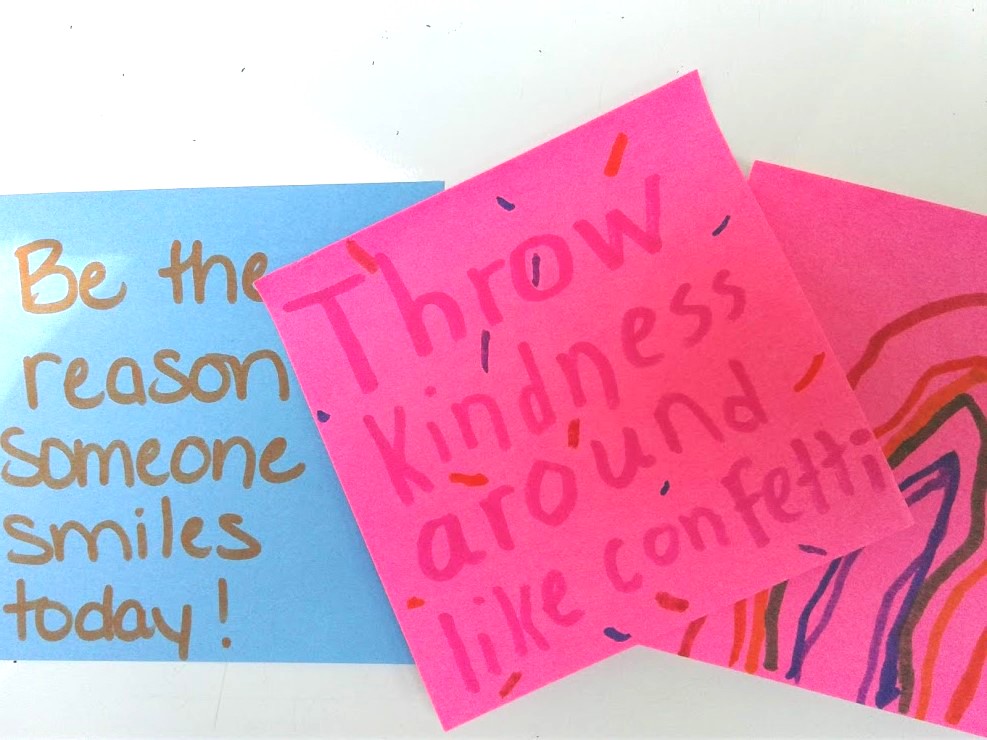 Be the
reason
someone
smiles
today!
Throw
kindness
around
like confetti